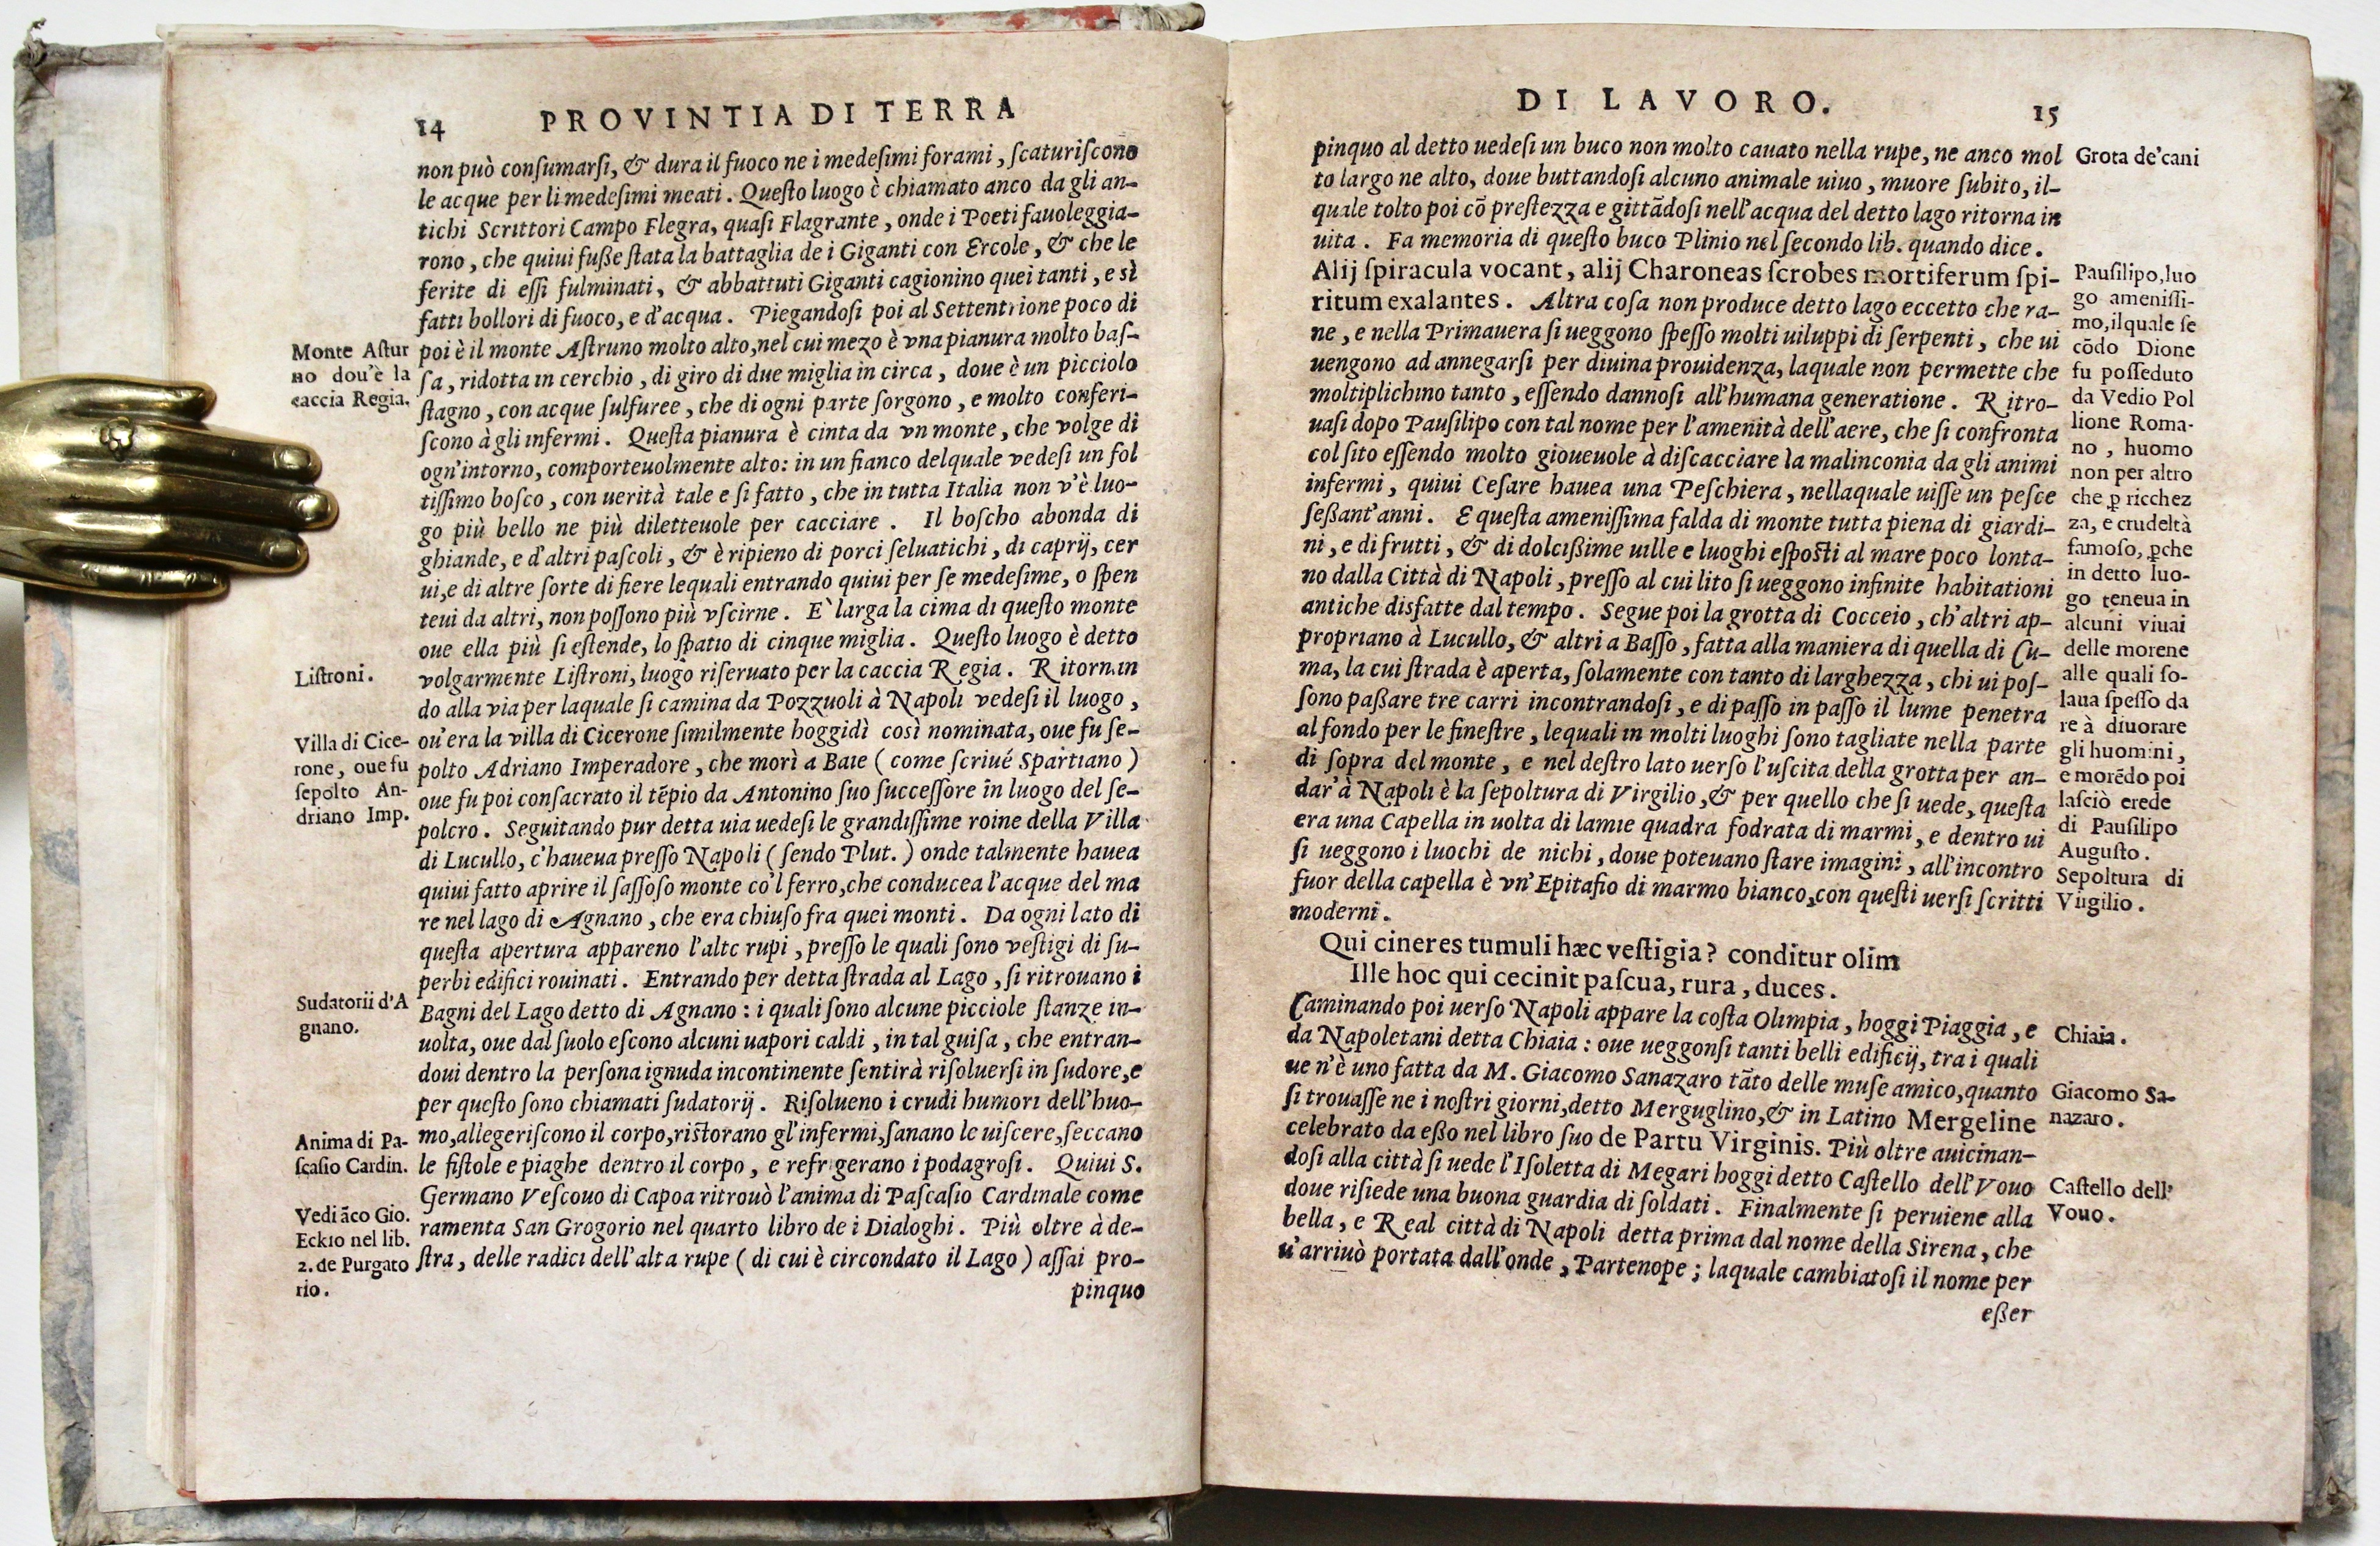 14 PROVINTIA DI TERRA
non può conſumarſi, & dura il fuoco ne i medeſimi forami, ſcaturiſcono
le acque per li medeſimi meati. Queſto luogo è chiamato anco da gli an-
tichi Scrittori Campo Flegra, quaſi Flagrante, onde i Poeti fauoleggia-
rono, che quiui fuße ſtata la battaglia de i Giganti con Ercole, & che le
ferite di eſſi fulminati, & abbattuti Giganti cagionino quei tanti, e sì
fatti bollori di fuoco, e d'acqua. Piegandoſi poi al Settentrione poco di
poi è il monte Aſtruno molto alto, nel cui mezo è vna pianura molto baſ-
ſa, ridotta in cerchio, di giro di due miglia in circa, doue è un picciolo
ſtagno, con acque ſulfuree, che di ogni parte ſorgono, e molto conferi-
ſcono à gli infermi. Queſta pianura è cinta da vn monte, che volge di
ogn'intorno, comporteuolmente alto: in un fianco delquale vedeſi un fol
tiſſimo boſco, con uerità tale e ſi fatto, che in tutta Italia non v'è luo-
go più bello ne più diletteuole per cacciare. Il boſcho abonda di
ghiande, e d'altri paſcoli, & è ripieno di porci ſeluatichi, di caprij, cer
ui, e di altre ſorte di fiere lequali entrando quiui per ſe medeſime, o ſpen
teui da altri, non poſſono più vſcirne. E` larga la cima di queſto monte
oue ella più ſi eſtende, lo ſpatio di cinque miglia. Queſto luogo è detto
volgarmente Liſtroni, luogo riſeruato per la caccia Regia. Ritornan
do alla via per laquale ſi camina da Pozzuoli à Napoli vedeſi il luogo,
ou'era la villa di Cicerone ſimilmente hoggidì così nominata, oue fu ſe-
polto Adriano Imperadore, che morì a Baie (come ſcriué Spartiano)
oue fu poi conſacrato il tẽpio da Antonino ſuo ſucceſſore in luogo del ſe-
polcro. Seguitando pur detta uia uedeſi le grandiſſime roine della Villa
di Lucullo, c'haueua preſſo Napoli (ſendo Plut.) onde talmente hauea
quiui fatto aprire il ſaſſoſo monte co'l ferro, che conducea l'acque del ma
re nel lago di Agnano, che era chiuſo fra quei monti. Da ogni lato di
queſta apertura appareno l'alte rupi, preſſo le quali ſono veſtigi di ſu-
perbi edifici rouinati. Entrando per detta ſtrada al Lago, ſi ritrouano i
Bagni del Lago detto di Agnano: i quali ſono alcune picciole ſtanze in-
uolta, oue dal ſuolo eſcono alcuni uapori caldi, in tal guiſa, che entran-
doui dentro la perſona ignuda incontinente ſentirà riſoluerſi in ſudore, e
per queſto ſono chiamati ſudatorij. Riſolueno i crudi humori dell'huo-
mo, allegeriſcono il corpo, riſtorano gl'infermi, ſanano le uiſcere, ſeccano
le fiſtole e piaghe dentro il corpo, e refrigerano i podagroſi. Quiui S.
Germano Veſcouo di Capoa ritrouò l'anima di Paſcaſio Cardinale come
ramenta San Grogorio nel quarto libro de i Dialoghi. Più oltre à de-
ſtra, delle radici dell'alta rupe (di cui è circondato il Lago) aſſai pro-
pinquo
Monte Aſtur
no dou'è la
caccia Regia.
Liſtroni.
Villa di Cice-
rone, oue fu
ſepolto An-
driano Imp.
Sudatorii d'A
gnano.
Anima di Pa-
ſcaſio Cardin.
Vedi ãco Gio.
Eckio nel lib.
2. de Purgato
rio.
DI LAVORO. 15
pinquo al detto uedeſi un buco non molto cauato nella rupe, ne anco mol
to largo ne alto, doue buttandoſi alcuno animale uiuo, muore ſubito, il-
quale tolto poi cõ preſtezza e gittãdoſi nell'acqua del detto lago ritorna in
uita. Fa memoria di queſto buco Plinio nel ſecondo lib. quando dice.
Alij ſpiracula vocant, alij Charoneas ſcrobes mortiferum ſpi-
ritum exalantes. Altra coſa non produce detto lago eccetto che ra-
ne, e nella Primauera ſi ueggono ſpeſſo molti uiluppi di ſerpenti, che ui
uengono ad annegarſi per diuina prouidenza, laquale non permette che
moltiplichino tanto, eſſendo dannoſi all'humana generatione. Ritro-
uaſi dopo Pauſilipo con tal nome per l'amenità dell'aere, che ſi confronta
col ſito eſſendo molto gioueuole à diſcacciare la malinconia da gli animi
infermi, quiui Ceſare hauea una Peſchiera, nellaquale uiſſe un peſce
ſeßant'anni. E queſta ameniſſima falda di monte tutta piena di giardi-
ni, e di frutti, & di dolcißime uille e luoghi eſpoſti al mare poco lonta-
no dalla Città di Napoli, preſſo al cui lito ſi ueggono infinite habitationi
antiche disfatte dal tempo. Segue poi la grotta di Cocceio, ch'altri ap-
propriano à Lucullo, & altri a Baſſo, fatta alla maniera di quella di Cu-
ma, la cui ſtrada è aperta, ſolamente con tanto di larghezza, chi ui poſ-
ſono paßare tre carri incontrandoſi, e di paſſo in paſſo il lume penetra
al fondo per le fineſtre, lequali in molti luoghi ſono tagliate nella parte
di ſopra del monte, e nel deſtro lato uerſo l'uſcita della grotta per an-
dar'à Napoli è la ſepoltura di Virgilio, & per quello che ſi uede, queſta
era una Capella in uolta di lamie quadra fodrata di marmi, e dentro ui
ſi ueggono i luochi de nichi, doue poteuano ſtare imagini, all'incontro
fuor della capella è vn'Epitafio di marmo bianco, con queſti uerſi ſcritti
moderni.
Qui cineres tumuli hæc veſtigia? conditur olim
Ille hoc qui cecinit paſcua, rura, duces.
Caminando poi uerſo Napoli appare la coſta Olimpia, hoggi Piaggia, e
da Napoletani detta Chiaia: oue ueggonſi tanti belli edificij, tra i quali
ue n'è uno fatta da M. Giacomo Sanazaro tãto delle muſe amico, quanto
ſi trouaſſe ne i noſtri giorni, detto Merguglino, & in Latino Mergeline
celebrato da eßo nel libro ſuo de Partu Virginis. Più oltre auicinan-
doſi alla città ſi uede l'Iſoletta di Megari hoggi detto Caſtello dell'Vouo
doue riſiede una buona guardia di ſoldati. Finalmente ſi peruiene alla
bella, e Real città di Napoli detta prima dal nome della Sirena, che
u'arriuò portata dall'onde, Partenope; laquale cambiatoſi il nome per
eßer
Grota de'cani
Pauſilipo, luo
go ameniſſi-
mo, il quale ſe
cõdo Dione
fu poſſeduto
da Vedio Pol
lione Roma-
no, huomo
non per altro
che ꝑ ricchez
za, e crudeltà
famoſo, ꝑche
in detto luo-
go teneua in
alcuni viuai
delle morene
alle quali ſo-
laua ſpeſſo da
re à diuorare
gli huomini,
e morẽdo poi
laſciò erede
di Pauſilipo
Auguſto.
Sepoltura di
Virgilio.
Chiaia.
Giacomo Sa-
nazaro.
Caſtello dell'
Vouo.